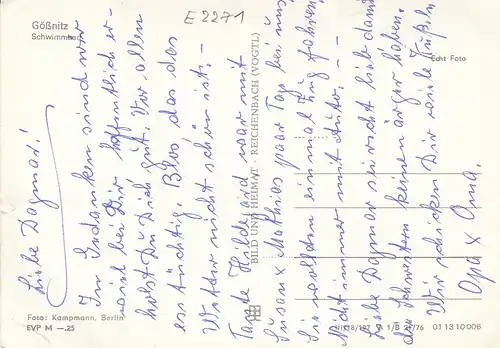 Gößnitz
Schwimmbad
E 2271
Echt Foto
Liebe Dagmar!
In Gedanken sind wir
viel bei Dir hoffentlich er-
holst Du Dich gut. Vor allen
es tüchtig. Blos das das
Wetter nicht schön ist. –
Tante Hildegard war mit
Susan x Mathias paar Tage bei uns
Sie wollten einmal Zug fahren.
Nicht immer mit Auto. –
Liebe Dagmar sei recht lieb damit
die Schwestern keinen ärger haben.
Wir schicken Dir viele Grüße
Opa x Oma.
BILD UND HEIMAT · REICHENBACH (VOGTL)
Foto: Kampmann, Berlin
EVP M –.25
01 13 10 006